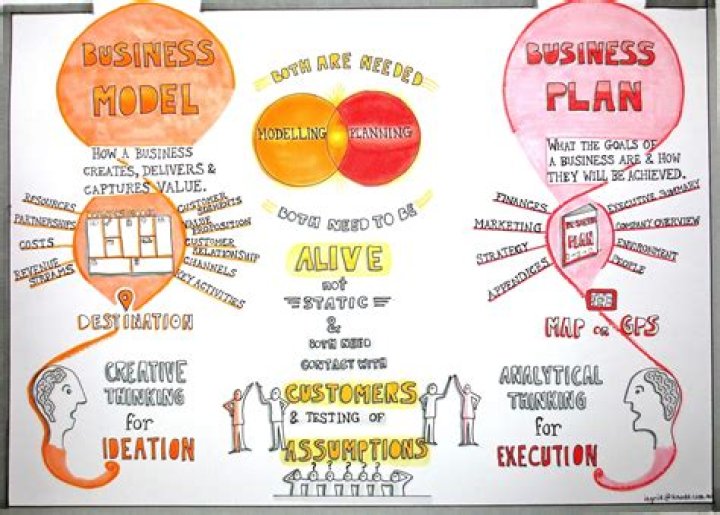 BUSINESS
MODEL
HOW A BUSINESS
CREATES, DELIVERS &
CAPTURES VALUE.
RESOURCES
PARTNERSHIPS
COSTS
REVENUE
STREAMS
CUSTOMER
SEGMENTS
VALUE
PROPOSITION
CUSTOMER
RELATIONSHIP
CHANNELS
KEY ACTIVITIES
DESTINATION
CREATIVE
THINKING
for
IDEATION
BOTH ARE NEEDED
MODELLING
PLANNING
BOTH NEED TO BE
ALIVE
not
STATIC
&
BOTH NEED
CONTACT WITH
CUSTOMERS
& TESTING OF
ASSUMPTIONS
? ? ? ? ?
BUSINESS
PLAN
WHAT THE GOALS OF
A BUSINESS ARE & HOW
THEY WILL BE ACHIEVED.
FINANCES
MARKETING
STRATEGY
APPENDICES
PLAN
EXECUTIVE SUMMARY
COMPANY OVERVIEW
ENVIRONMENT
PEOPLE
MAP or GPS
ANALYTICAL
THINKING
for
EXECUTION